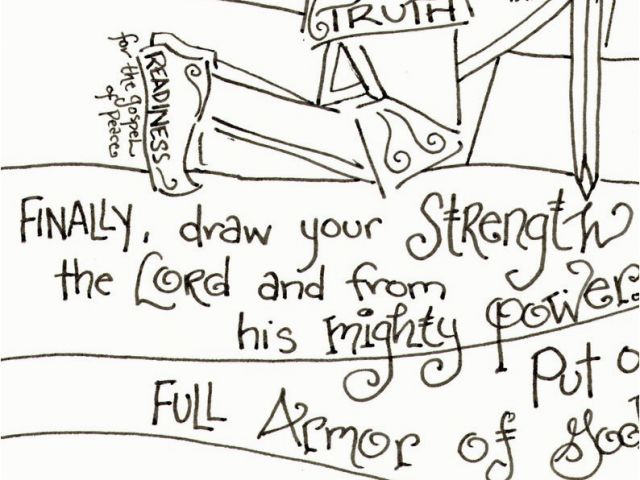 TRUTH
READINESS
for the gospel
of peace
FINALLY, draw your Strength
the LORD and from
his mighty power.
Put o
FULL Armor of God